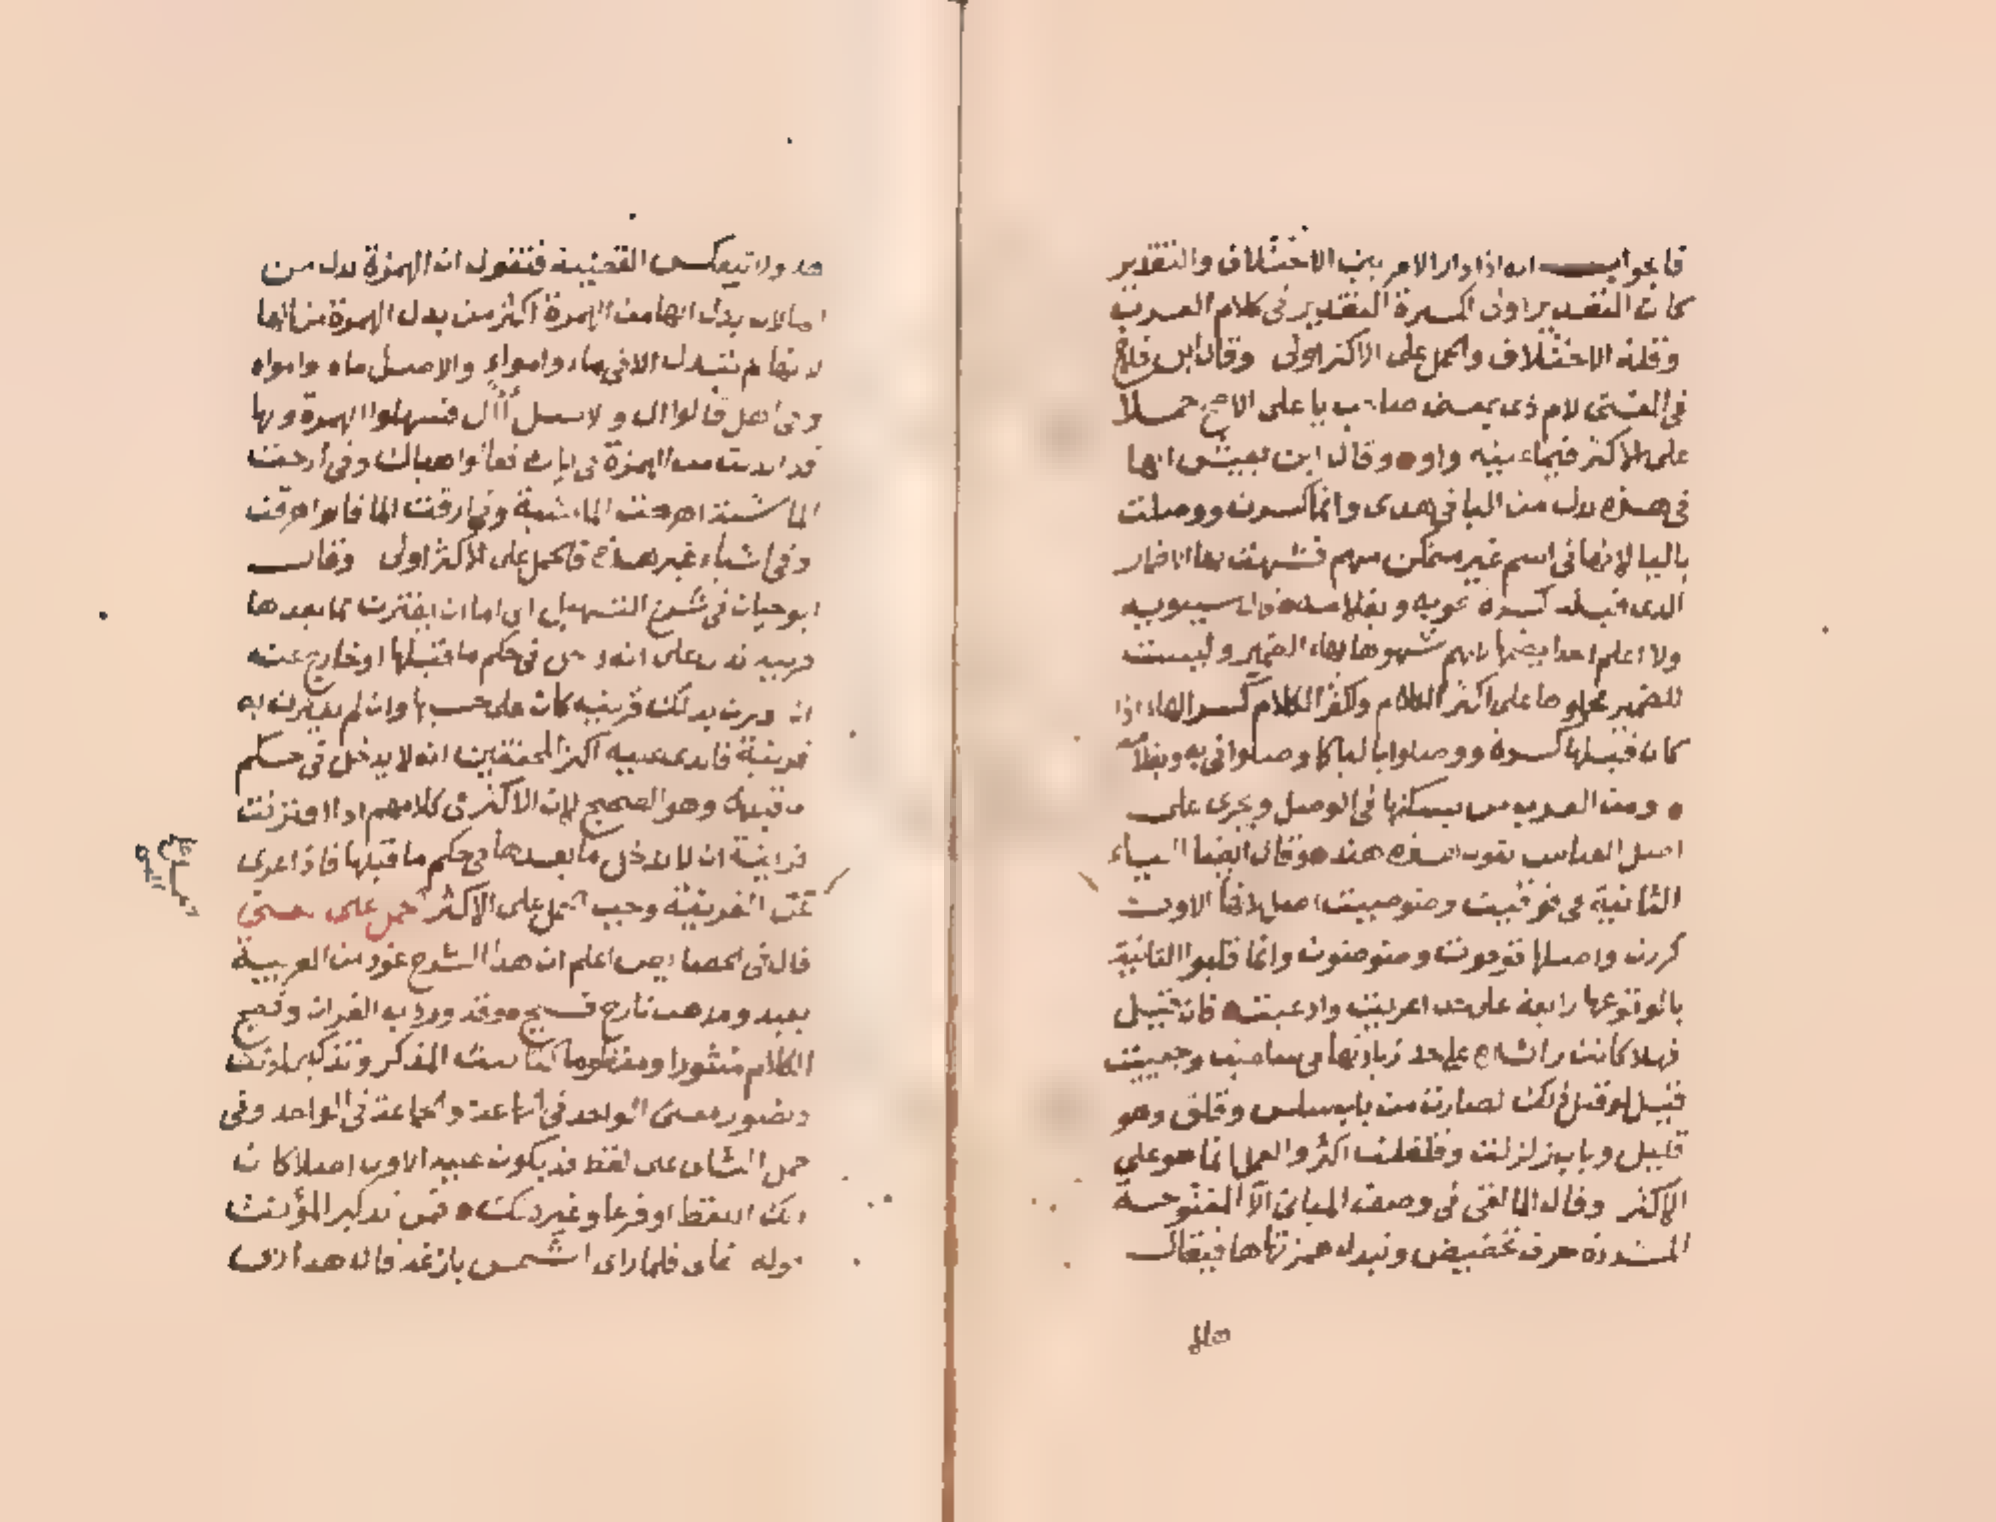 فالجواب انه اذا دار الامر بين الاختلاف والتقدير
كان التقدير اولى لكثرة التقدير فى كلام العرب
وقلة الاختلاف والحمل على الاكثر اولى وقال ابن فلاح
فى المغنى لام ذى بمعنى صاحب يا على الاصح حملا
على الاكثر فيما عينه واو وقال ابن يعيش الها
فى هذه بدل من اليا فى هذى وانما كسرت ووصلت
باليا لانها فى اسم غير متمكن مبهم فشبهت بها الاضمار
الذى قبله كسرة نحو به وبغلامه قال سيبويه
ولا اعلم احدا يضمها لانهم شبهوها بهاء الضمير وليست
للضمير فحملوها على اكثر الكلام واكثر الكلام كسر الهاء اذا
كان قبلها كسرة ووصلوها باليا كما وصلوا فى به وبغلامه
ومن العرب من يسكنها فى الوصل ويجرى على
اصل القياس يقول هذه هند وقال ايضا الياء
الثانية فى قوقيت وضوضيت اصل لانها الاولى
كررت واصلها قوقوت وضوضوت وانما قلبوا الثانية
يا لوقوعها رابعة على حد اغزيت وادعيت فان قيل
فهلا كانت زائدة على حد زيادتها فى سلقيت وجعبيت
قيل لو قيل ذلك لصارت من باب سلس وقلق وهو
قليل وباب زلزلت وقلقلت اكثر والعمل انما هو على
الاكثر وقال المالقى فى وصف المبانى الا المفتوحة
المشددة حرف تحضيض وتبدل همزتها ها فيقال
هلا
هلا ولا تنعكس القضية فتقول ان الهمزة بدل من
الها لان بدل الها من الهمزة اكثر من بدل الهمزة من الها
لانها لم تبدل الا فى ماء وامواء والاصل ماه وامواه
وفى اهل قالوا ال والاصل أأل فسهلوا الهمزة وها
قد ابدلت من الهمزة فى اياك فقالوا هياك وفى ارحت
الماشية هرحت الماشية وفى ارقت الما قالوا هرقت
وفى اشياء غير هذه فالحمل على الاكثر اولى وقال
ابو حيان فى شرح التسهيل الى اما ان يقترن بما بعدها
قرينة تدل على انه داخل فى حكم ما قبلها او خارج عنه
ان اقترن بذلك قرينة كان على حسبها وان لم يقترن به
قرينة فالذى عليه اكثر المحققين انه لا يدخل فى حكم
ما قبله وهو الصحيح لان الاكثر فى كلامهم اذا اقترنت
قرينة ان لا يدخل ما بعدها فى حكم ما قبلها فاذا عرى
عن القرينة وجب الحمل على الاكثر حمل على معنى
قال فى الخصايص اعلم ان هذا الشرح غور من العربية
بعيد ومذهب نازح فسيح وقد ورد به القران وفصيح
الكلام منثورا ومنظوما كتانيث المذكر وتذكير المونث
وتصور معنى الواحد فى الجماعة والجماعة فى الواحد وفى
حمل الثانى على لفظ قد يكون عليه الاول اصلا كان
ذلك اللفظ او فرعا وغير ذلك فمن تذكير المؤنث
قوله تعالى فلما راى الشمس بازغة قال هذا ربى